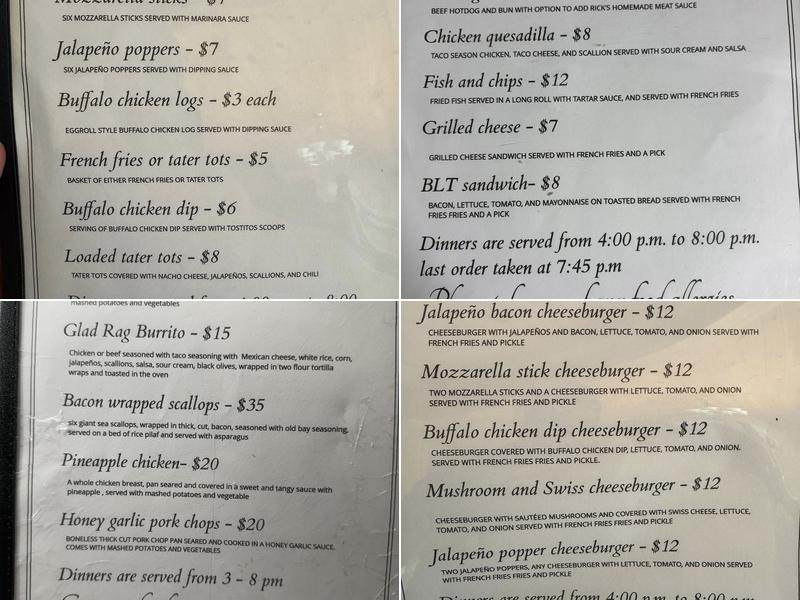 Mozzarella sticks - $7
SIX MOZZARELLA STICKS SERVED WITH MARINARA SAUCE
Jalapeño poppers - $7
SIX JALAPEÑO POPPERS SERVED WITH DIPPING SAUCE
Buffalo chicken logs - $3 each
EGGROLL STYLE BUFFALO CHICKEN LOG SERVED WITH DIPPING SAUCE
French fries or tater tots - $5
BASKET OF EITHER FRENCH FRIES OR TATER TOTS
Buffalo chicken dip - $6
SERVING OF BUFFALO CHICKEN DIP SERVED WITH TOSTITOS SCOOPS
Loaded tater tots - $8
TATER TOTS COVERED WITH NACHO CHEESE, JALAPEÑOS, SCALLIONS, AND CHILI
BEEF HOTDOG AND BUN WITH OPTION TO ADD RICK'S HOMEMADE MEAT SAUCE
Chicken quesadilla - $8
TACO SEASON CHICKEN, TACO CHEESE, AND SCALLION SERVED WITH SOUR CREAM AND SALSA
Fish and chips - $12
FRIED FISH SERVED IN A LONG ROLL WITH TARTAR SAUCE, AND SERVED WITH FRENCH FRIES
Grilled cheese - $7
GRILLED CHEESE SANDWICH SERVED WITH FRENCH FRIES AND A PICK
BLT sandwich- $8
BACON, LETTUCE, TOMATO, AND MAYONNAISE ON TOASTED BREAD SERVED WITH FRENCH
FRIES FRIES AND A PICK
Dinners are served from 4:00 p.m. to 8:00 p.m.
last order taken at 7:45 p.m
mashed potatoes and vegetables
Glad Rag Burrito - $15
Chicken or beef seasoned with taco seasoning with Mexican cheese, white rice, corn,
jalapeños, scallions, salsa, sour cream, black olives, wrapped in two flour tortilla
wraps and toasted in the oven
Bacon wrapped scallops - $35
six giant sea scallops, wrapped in thick, cut, bacon, seasoned with old bay seasoning,
served on a bed of rice pilaf and served with asparagus
Pineapple chicken- $20
A whole chicken breast, pan seared and covered in a sweet and tangy sauce with
pineapple , served with mashed potatoes and vegetable
Honey garlic pork chops - $20
BONELESS THICK CUT PORK CHOP PAN SEARED AND COOKED IN A HONEY GARLIC SAUCE.
COMES WITH MASHED POTATOES AND VEGETABLES
Dinners are served from 3 - 8 pm
Jalapeño bacon cheeseburger - $12
CHEESEBURGER WITH JALAPEÑOS AND BACON, LETTUCE, TOMATO, AND ONION SERVED WITH
FRENCH FRIES AND PICKLE
Mozzarella stick cheeseburger - $12
TWO MOZZARELLA STICKS AND A CHEESEBURGER WITH LETTUCE, TOMATO, AND ONION
SERVED WITH FRENCH FRIES AND PICKLE
Buffalo chicken dip cheeseburger - $12
CHEESEBURGER COVERED WITH BUFFALO CHICKEN DIP, LETTUCE, TOMATO, AND ONION.
SERVED WITH FRENCH FRIES FRIES AND PICKLE.
Mushroom and Swiss cheeseburger - $12
CHEESEBURGER WITH SAUTÉED MUSHROOMS AND COVERED WITH SWISS CHEESE, LETTUCE,
TOMATO, AND ONION SERVED WITH FRENCH FRIES FRIES AND PICKLE
Jalapeño popper cheeseburger - $12
TWO JALAPEÑO POPPERS, ANY CHEESEBURGER WITH LETTUCE, TOMATO, AND ONION SERVED
WITH FRENCH FRIES FRIES AND PICKLE
Dinners are served from 4:00 p.m. to 8:00 p.m.